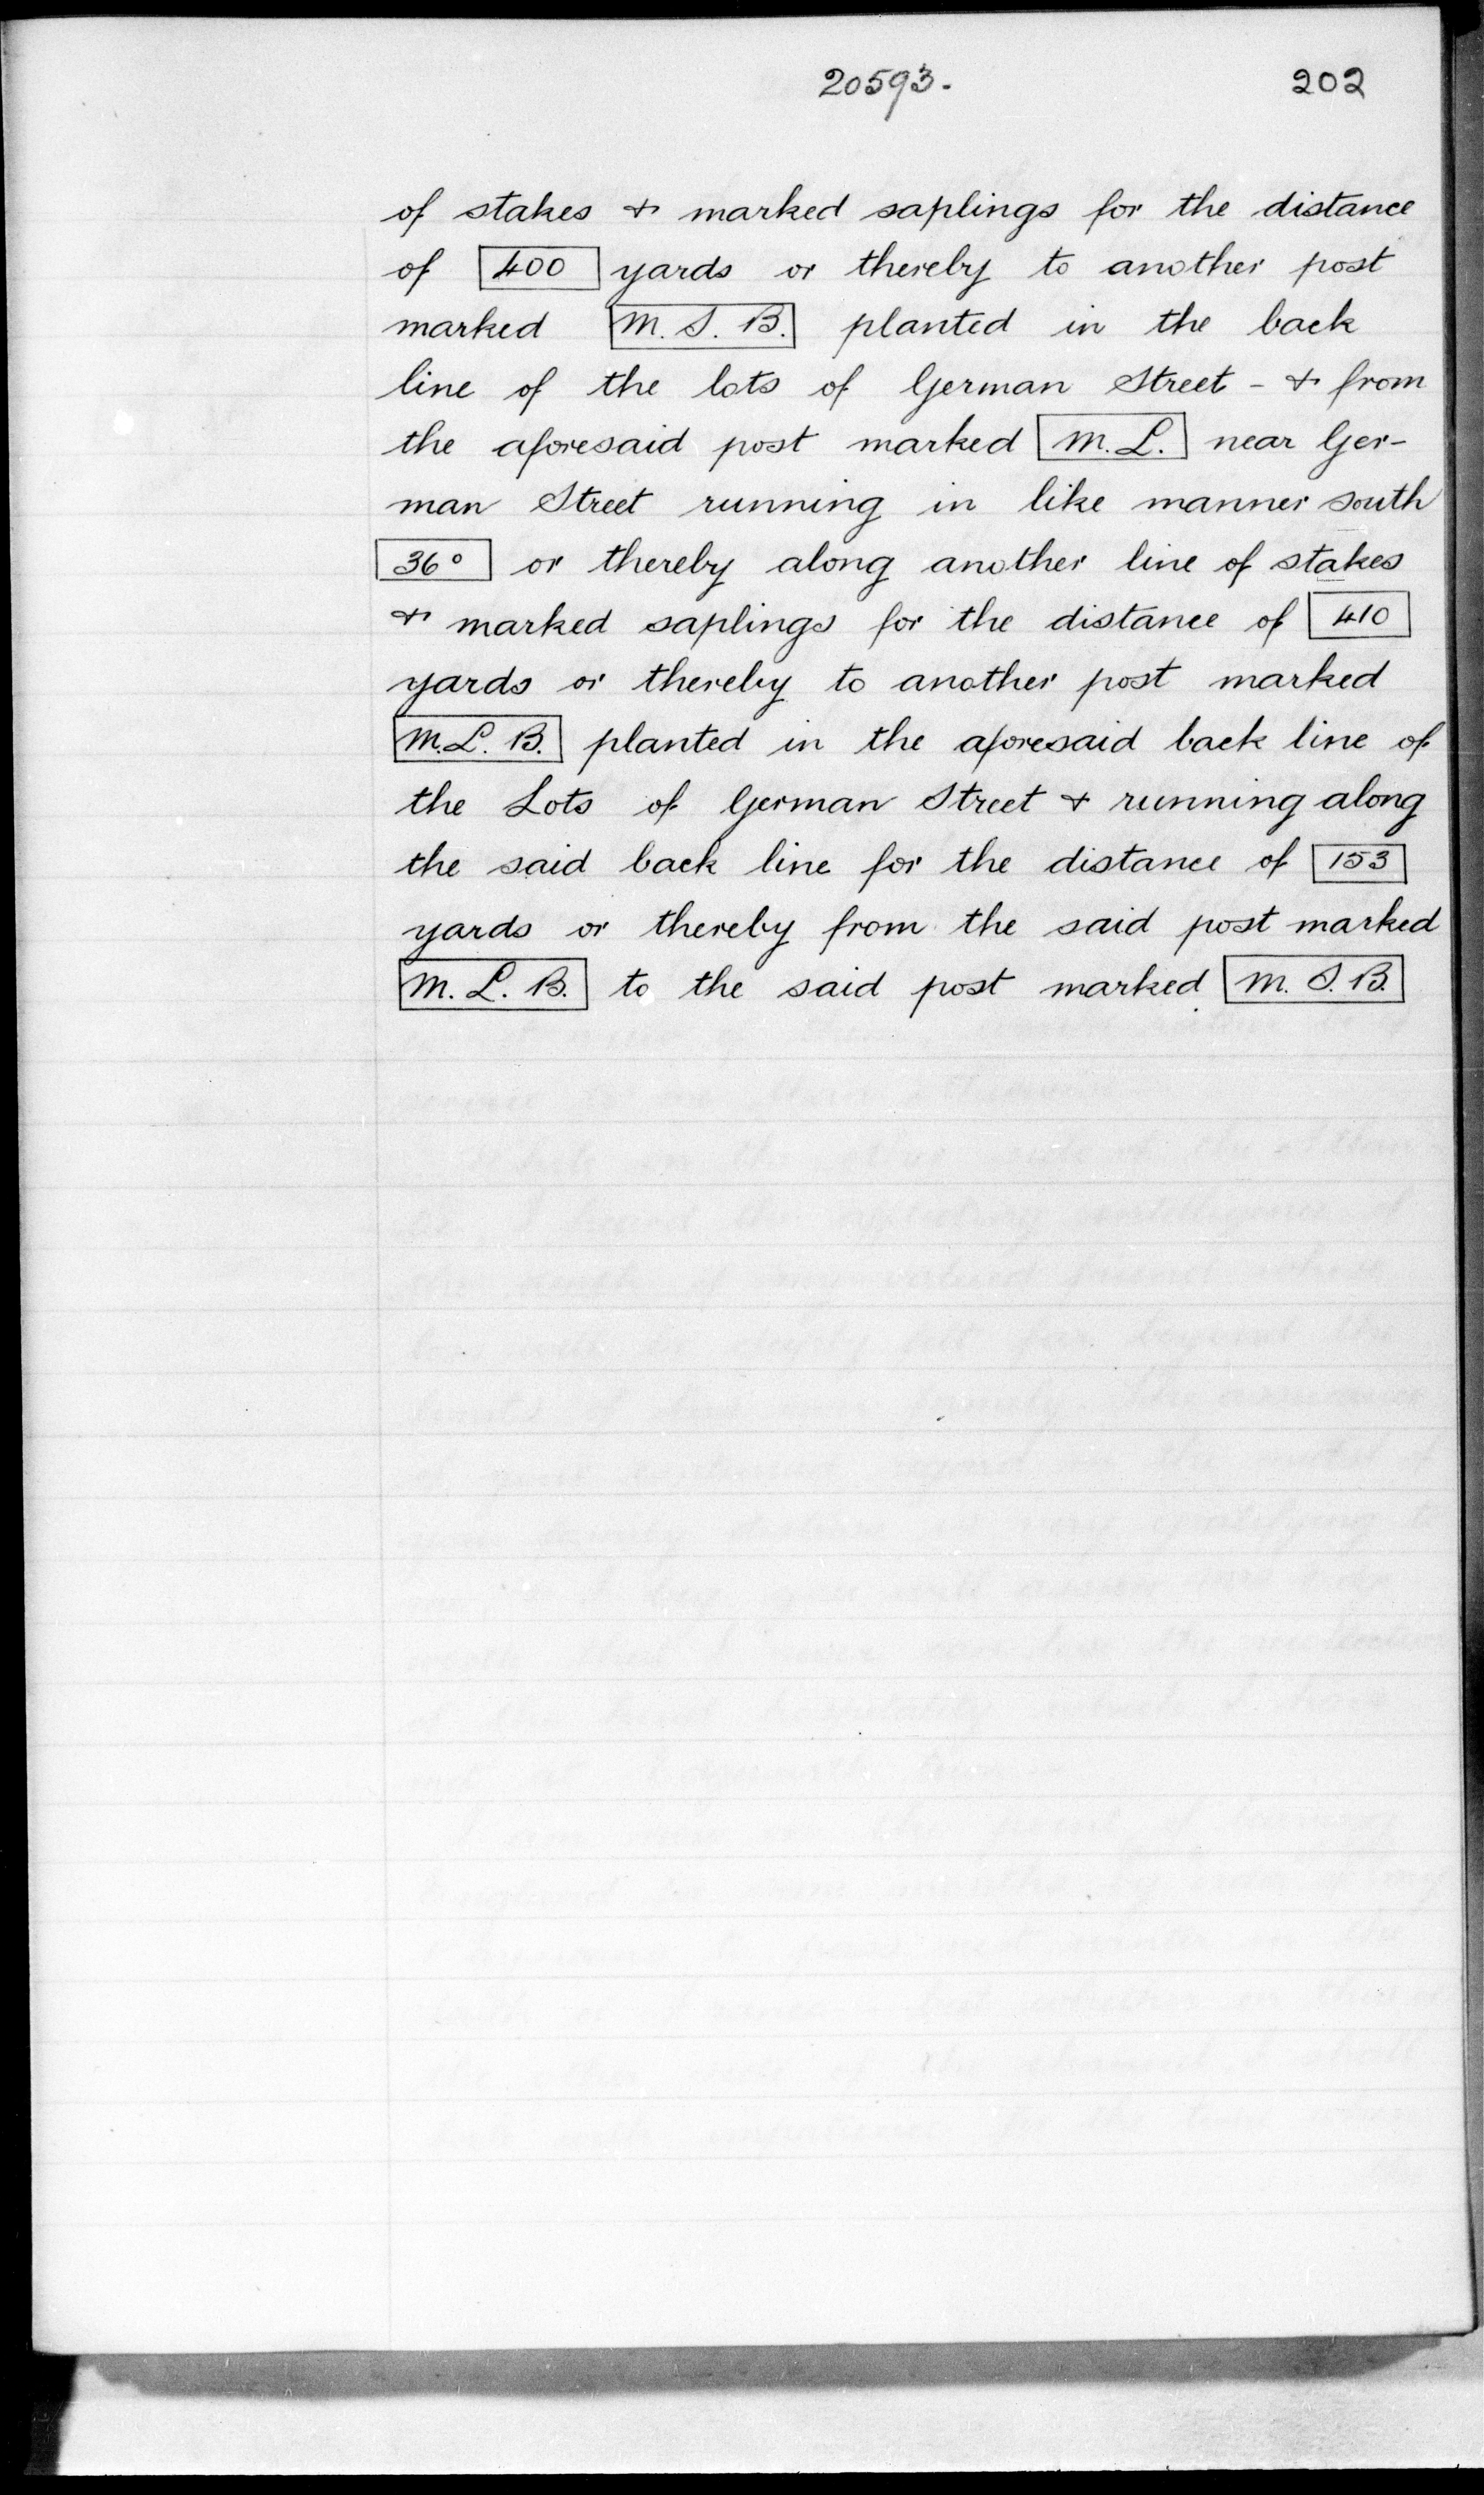 20593. 202
of stakes & marked saplings for the distance
of 400 yards or thereby to another post
marked M. S. B. planted in the back
line of the lots of German Street - & from
the aforesaid post marked M. L. near Ger-
man Street running in like manner south
36° or thereby along another line of stakes
& marked saplings for the distance of 410
yards or thereby to another post marked
M. L. B. planted in the aforesaid back line of
the Lots of German Street & running along
the said back line for the distance of 153
yards or thereby from the said post marked
M. L. B. to the said post marked M. S. B.